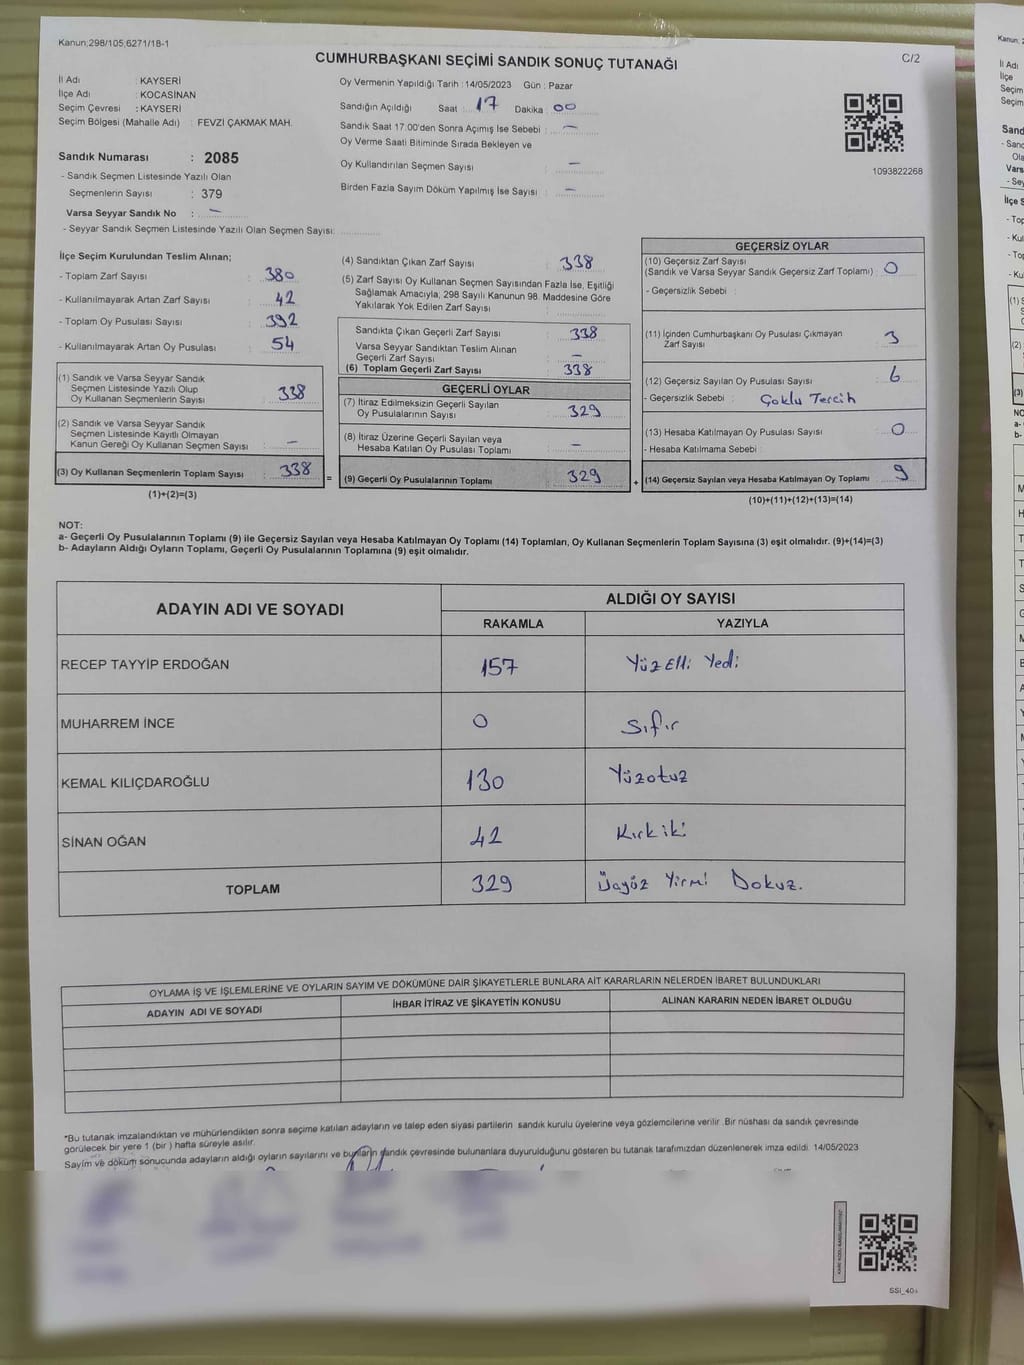 Kanun;298/105,6271/18-1
CUMHURBAŞKANI SEÇİMİ SANDIK SONUÇ TUTANAĞI
C/2
İl Adı : KAYSERİ
İlçe Adı : KOCASİNAN
Seçim Çevresi : KAYSERİ
Seçim Bölgesi (Mahalle Adı) : FEVZİ ÇAKMAK MAH.
Sandık Numarası : 2085
- Sandık Seçmen Listesinde Yazılı Olan
Seçmenlerin Sayısı : 379
Varsa Seyyar Sandık No : –
- Seyyar Sandık Seçmen Listesinde Yazılı Olan Seçmen Sayısı:
Oy Vermenin Yapıldığı Tarih : 14/05/2023 Gün : Pazar
Sandığın Açıldığı Saat : 17 Dakika : 00
Sandık Saat 17.00'den Sonra Açımış İse Sebebi : –
Oy Verme Saati Bitiminde Sırada Bekleyen ve
Oy Kullandırılan Seçmen Sayısı : –
Birden Fazla Sayım Döküm Yapılmış İse Sayısı : –
1093822268
İlçe Seçim Kurulundan Teslim Alınan;
- Toplam Zarf Sayısı : 380
- Kullanılmayarak Artan Zarf Sayısı : 42
- Toplam Oy Pusulası Sayısı : 392
- Kullanılmayarak Artan Oy Pusulası : 54
(1) Sandık ve Varsa Seyyar Sandık
Seçmen Listesinde Yazılı Olup
Oy Kullanan Seçmenlerin Sayısı : 338
(2) Sandık ve Varsa Seyyar Sandık
Seçmen Listesinde Kayıtlı Olmayan
Kanun Gereği Oy Kullanan Seçmen Sayısı : –
(3) Oy Kullanan Seçmenlerin Toplam Sayısı : 338
(1)+(2)=(3)
=
(4) Sandıktan Çıkan Zarf Sayısı : 338
(5) Zarf Sayısı Oy Kullanan Seçmen Sayısından Fazla İse, Eşitliği
Sağlamak Amacıyla, 298 Sayılı Kanunun 98. Maddesine Göre
Yakılarak Yok Edilen Zarf Sayısı :
Sandıkta Çıkan Geçerli Zarf Sayısı : 338
Varsa Seyyar Sandıktan Teslim Alınan
Geçerli Zarf Sayısı : –
(6) Toplam Geçerli Zarf Sayısı : 338
GEÇERLİ OYLAR
(7) İtiraz Edilmeksizin Geçerli Sayılan
Oy Pusulalarının Sayısı : 329
(8) İtiraz Üzerine Geçerli Sayılan veya
Hesaba Katılan Oy Pusulası Toplamı : –
(9) Geçerli Oy Pusulalarının Toplamı : 329
+
GEÇERSİZ OYLAR
(10) Geçersiz Zarf Sayısı
(Sandık ve Varsa Seyyar Sandık Geçersiz Zarf Toplamı) : 0
- Geçersizlik Sebebi :
(11) İçinden Cumhurbaşkanı Oy Pusulası Çıkmayan
Zarf Sayısı : 3
(12) Geçersiz Sayılan Oy Pusulası Sayısı : 6
- Geçersizlik Sebebi : Çoklu Tercih
(13) Hesaba Katılmayan Oy Pusulası Sayısı : 0
- Hesaba Katılmama Sebebi :
(14) Geçersiz Sayılan veya Hesaba Katılmayan Oy Toplamı : 9
(10)+(11)+(12)+(13)=(14)
NOT:
a- Geçerli Oy Pusulalarının Toplamı (9) ile Geçersiz Sayılan veya Hesaba Katılmayan Oy Toplamı (14) Toplamları, Oy Kullanan Seçmenlerin Toplam Sayısına (3) eşit olmalıdır. (9)+(14)=(3)
b- Adayların Aldığı Oyların Toplamı, Geçerli Oy Pusulalarının Toplamına (9) eşit olmalıdır.
ADAYIN ADI VE SOYADI
ALDIĞI OY SAYISI
RAKAMLA YAZIYLA
RECEP TAYYİP ERDOĞAN 157 Yüz Elli Yedi
MUHARREM İNCE 0 Sıfır
KEMAL KILIÇDAROĞLU 130 Yüzotuz
SİNAN OĞAN 42 Kırkiki
TOPLAM 329 Üçyüz Yirmi Dokuz.
OYLAMA İŞ VE İŞLEMLERİNE VE OYLARIN SAYIM VE DÖKÜMÜNE DAİR ŞİKAYETLERLE BUNLARA AİT KARARLARIN NELERDEN İBARET BULUNDUKLARI
ADAYIN ADI VE SOYADI İHBAR İTİRAZ VE ŞİKAYETİN KONUSU ALINAN KARARIN NEDEN İBARET OLDUĞU
*Bu tutanak imzalandıktan ve mühürlendikten sonra seçime katılan adayların ve talep eden siyasi partilerin sandık kurulu üyelerine veya gözlemcilerine verilir. Bir nüshası da sandık çevresinde
görülecek bir yere 1 (bir) hafta süreyle asılır.
Sayım ve döküm sonucunda adayların aldığı oyların sayılarını ve bunların sandık çevresinde bulunanlara duyurulduğunu gösteren bu tutanak tarafımızdan düzenlenerek imza edildi. 14/05/2023